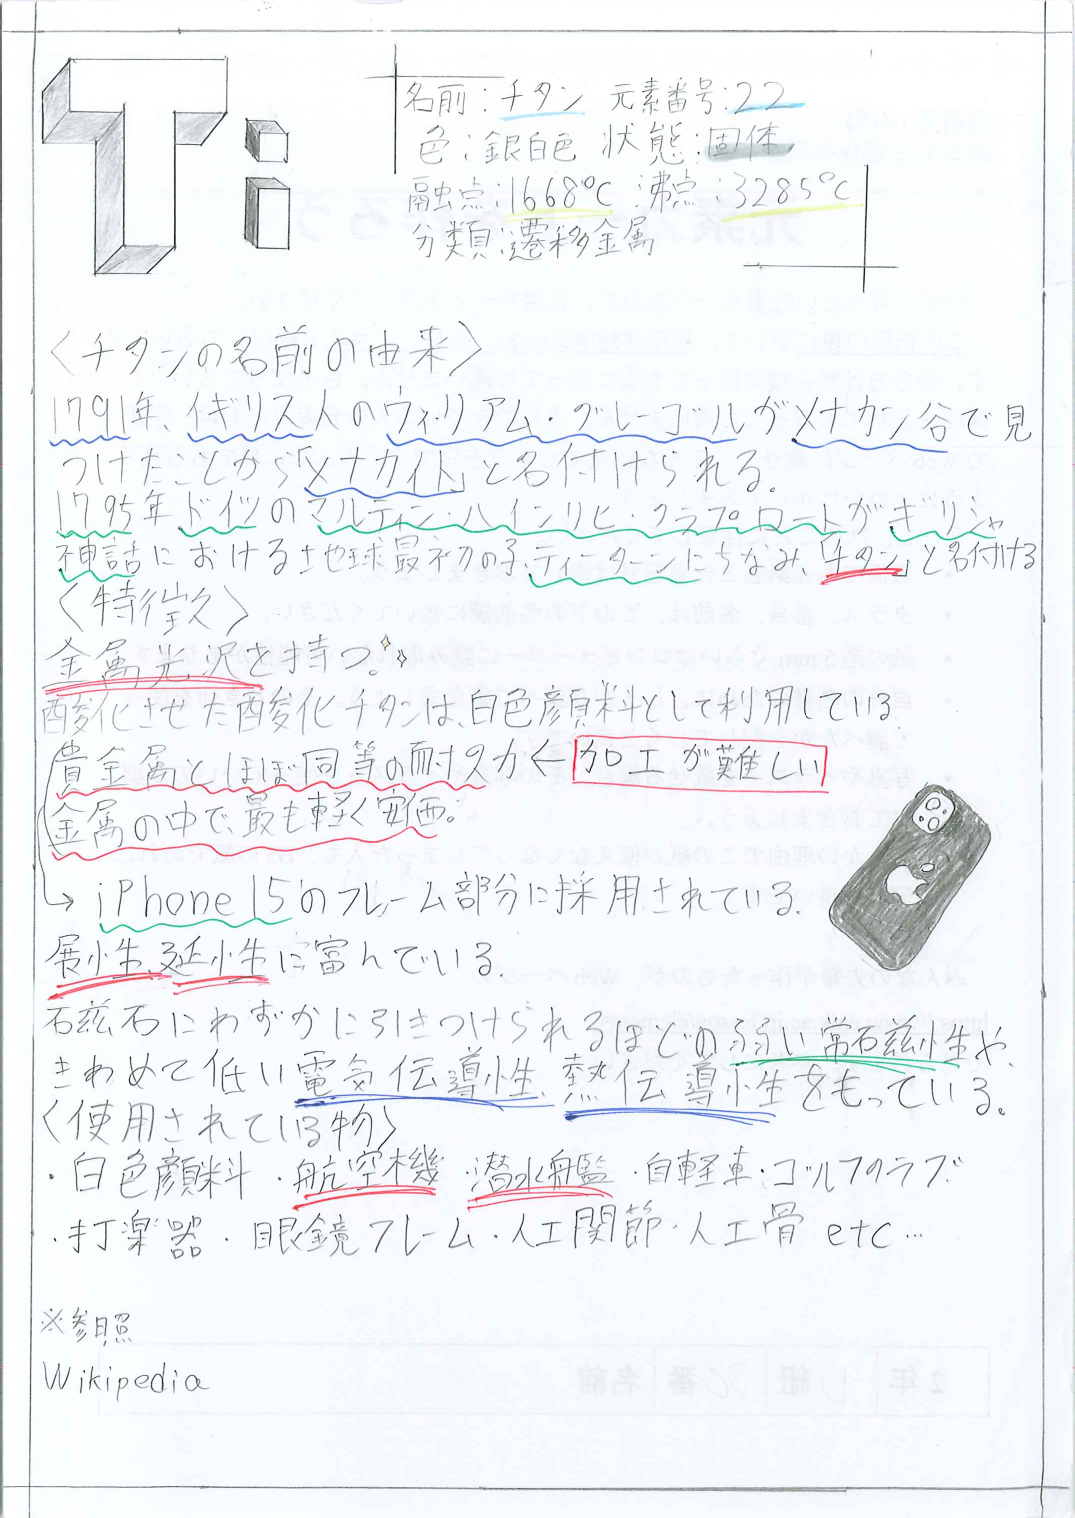 Ti
名前:チタン 元素番号:22
色:銀白色 状態:固体
融点:1668℃ 沸点:3285℃
分類:遷移金属
〈チタンの名前の由来〉
1791年、イギリス人のウィリアム・グレゴールがメナカン谷で見
つけたことから「メナカイト」と名付けられる。
1795年ドイツのマルティン・ハインリヒ・クラプロートがギリシャ
神話における地球最初の子、ティータンにちなみ、「チタン」と名付ける
〈特徴〉
金属光沢を持つ。
酸化させた酸化チタンは、白色顔料として利用している
貴金属とほぼ同等の耐久力←加工が難しい
金属の中で、最も軽く安価。
↳iPhone 15のフレーム部分に採用されている。
展性、延性に富んでいる。
磁石にわずかに引きつけられるほどの弱い常磁性や、
きわめて低い電気伝導性、熱伝導性をもっている。
〈使用されている物〉
・白色顔料 ・航空機 ・潜水艦 ・自転車 ・ゴルフクラブ
・打楽器 ・眼鏡フレーム ・人工関節 ・人工骨 etc…
※参照
Wikipedia